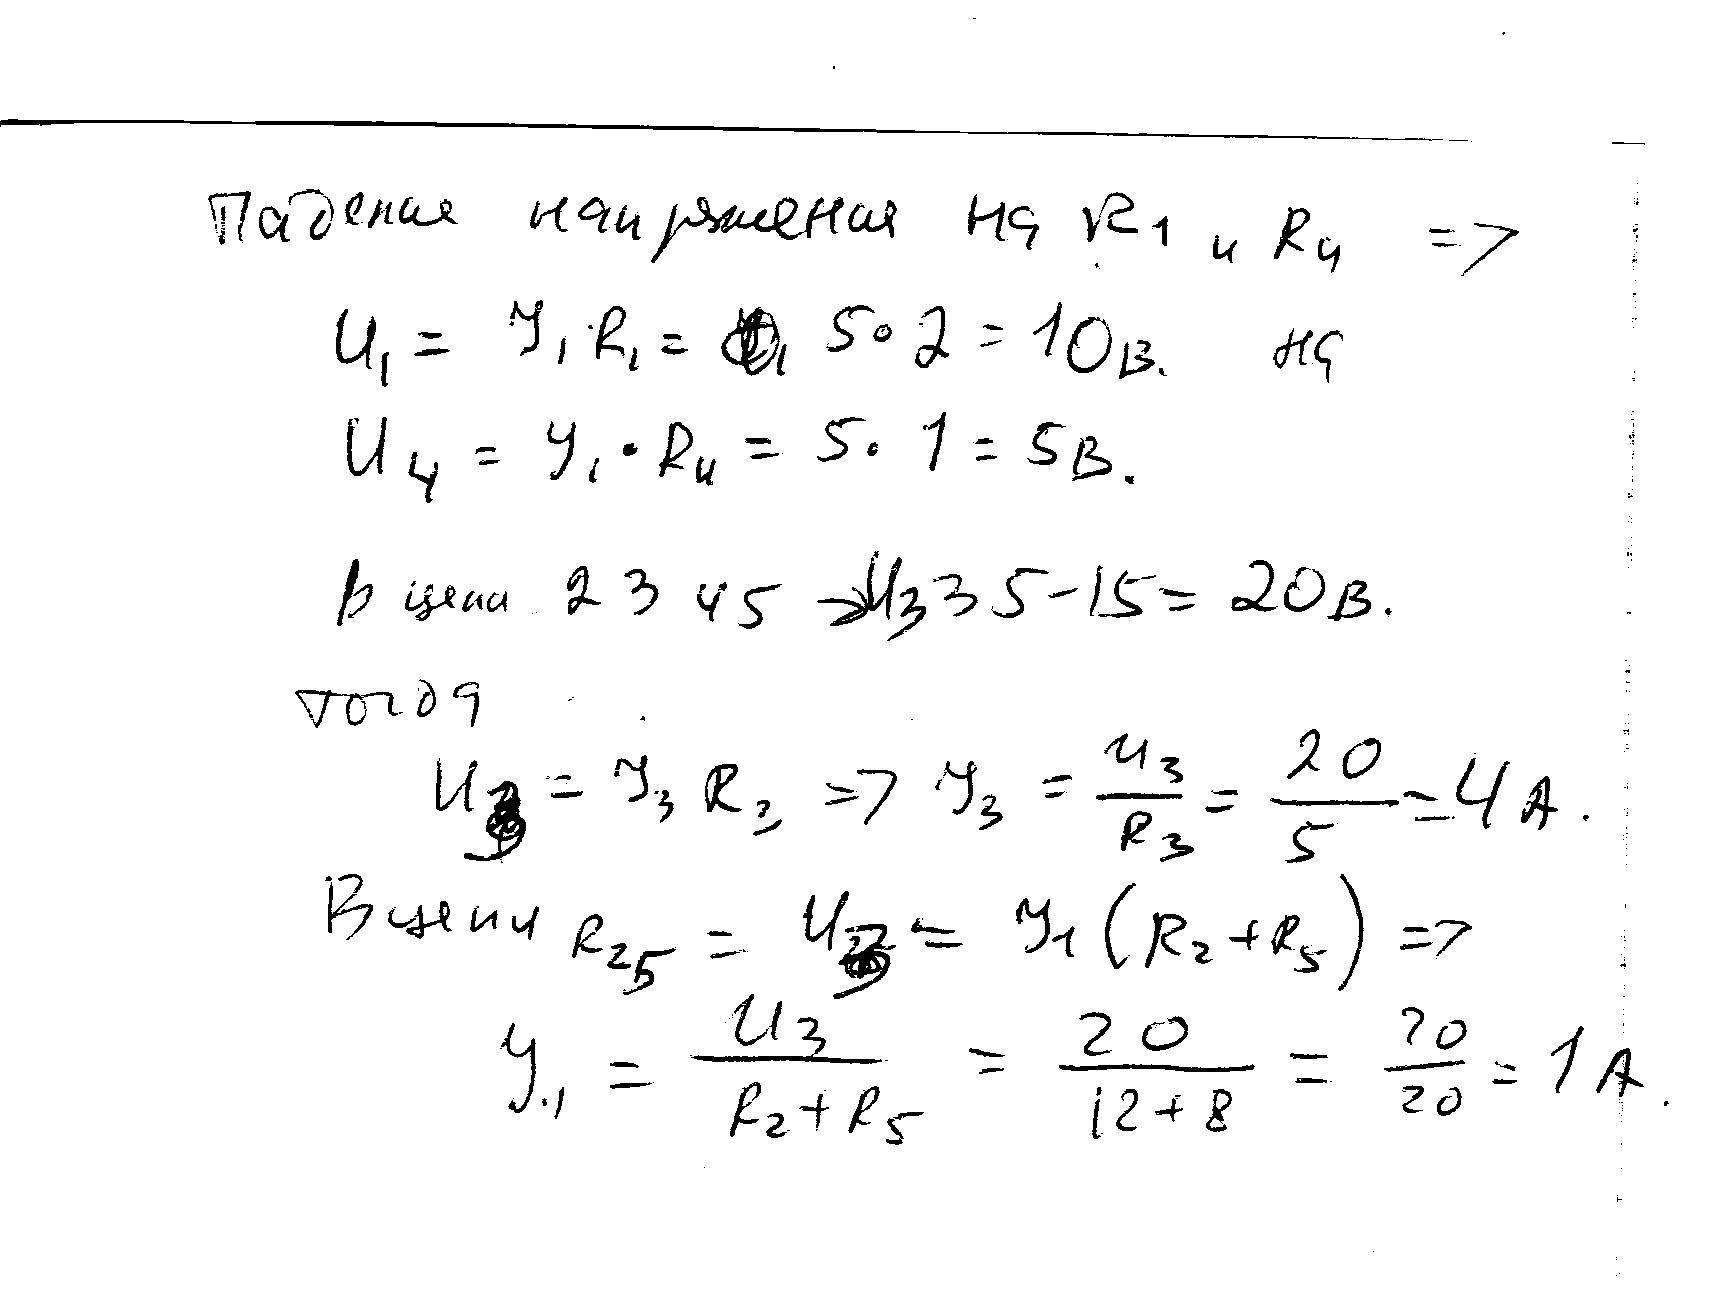 Падение напряжения на R1 и R4 =>
U1 = У1 R1 = 5∘2 = 10 в. на
U4 = У1 • R4 = 5 • 1 = 5 в.
в цепи 2 3 4 5 → U3 35 - 15 = 20 в.
тогда
U3 = У3 R3 => У3 = U3/R3 = 20/5 = 4 А.
В цепи R25 = U3 = У1 (R2 + R5) =>
У1 = U3/(R2 + R5) = 20/(12 + 8) = 20/20 = 1 А.